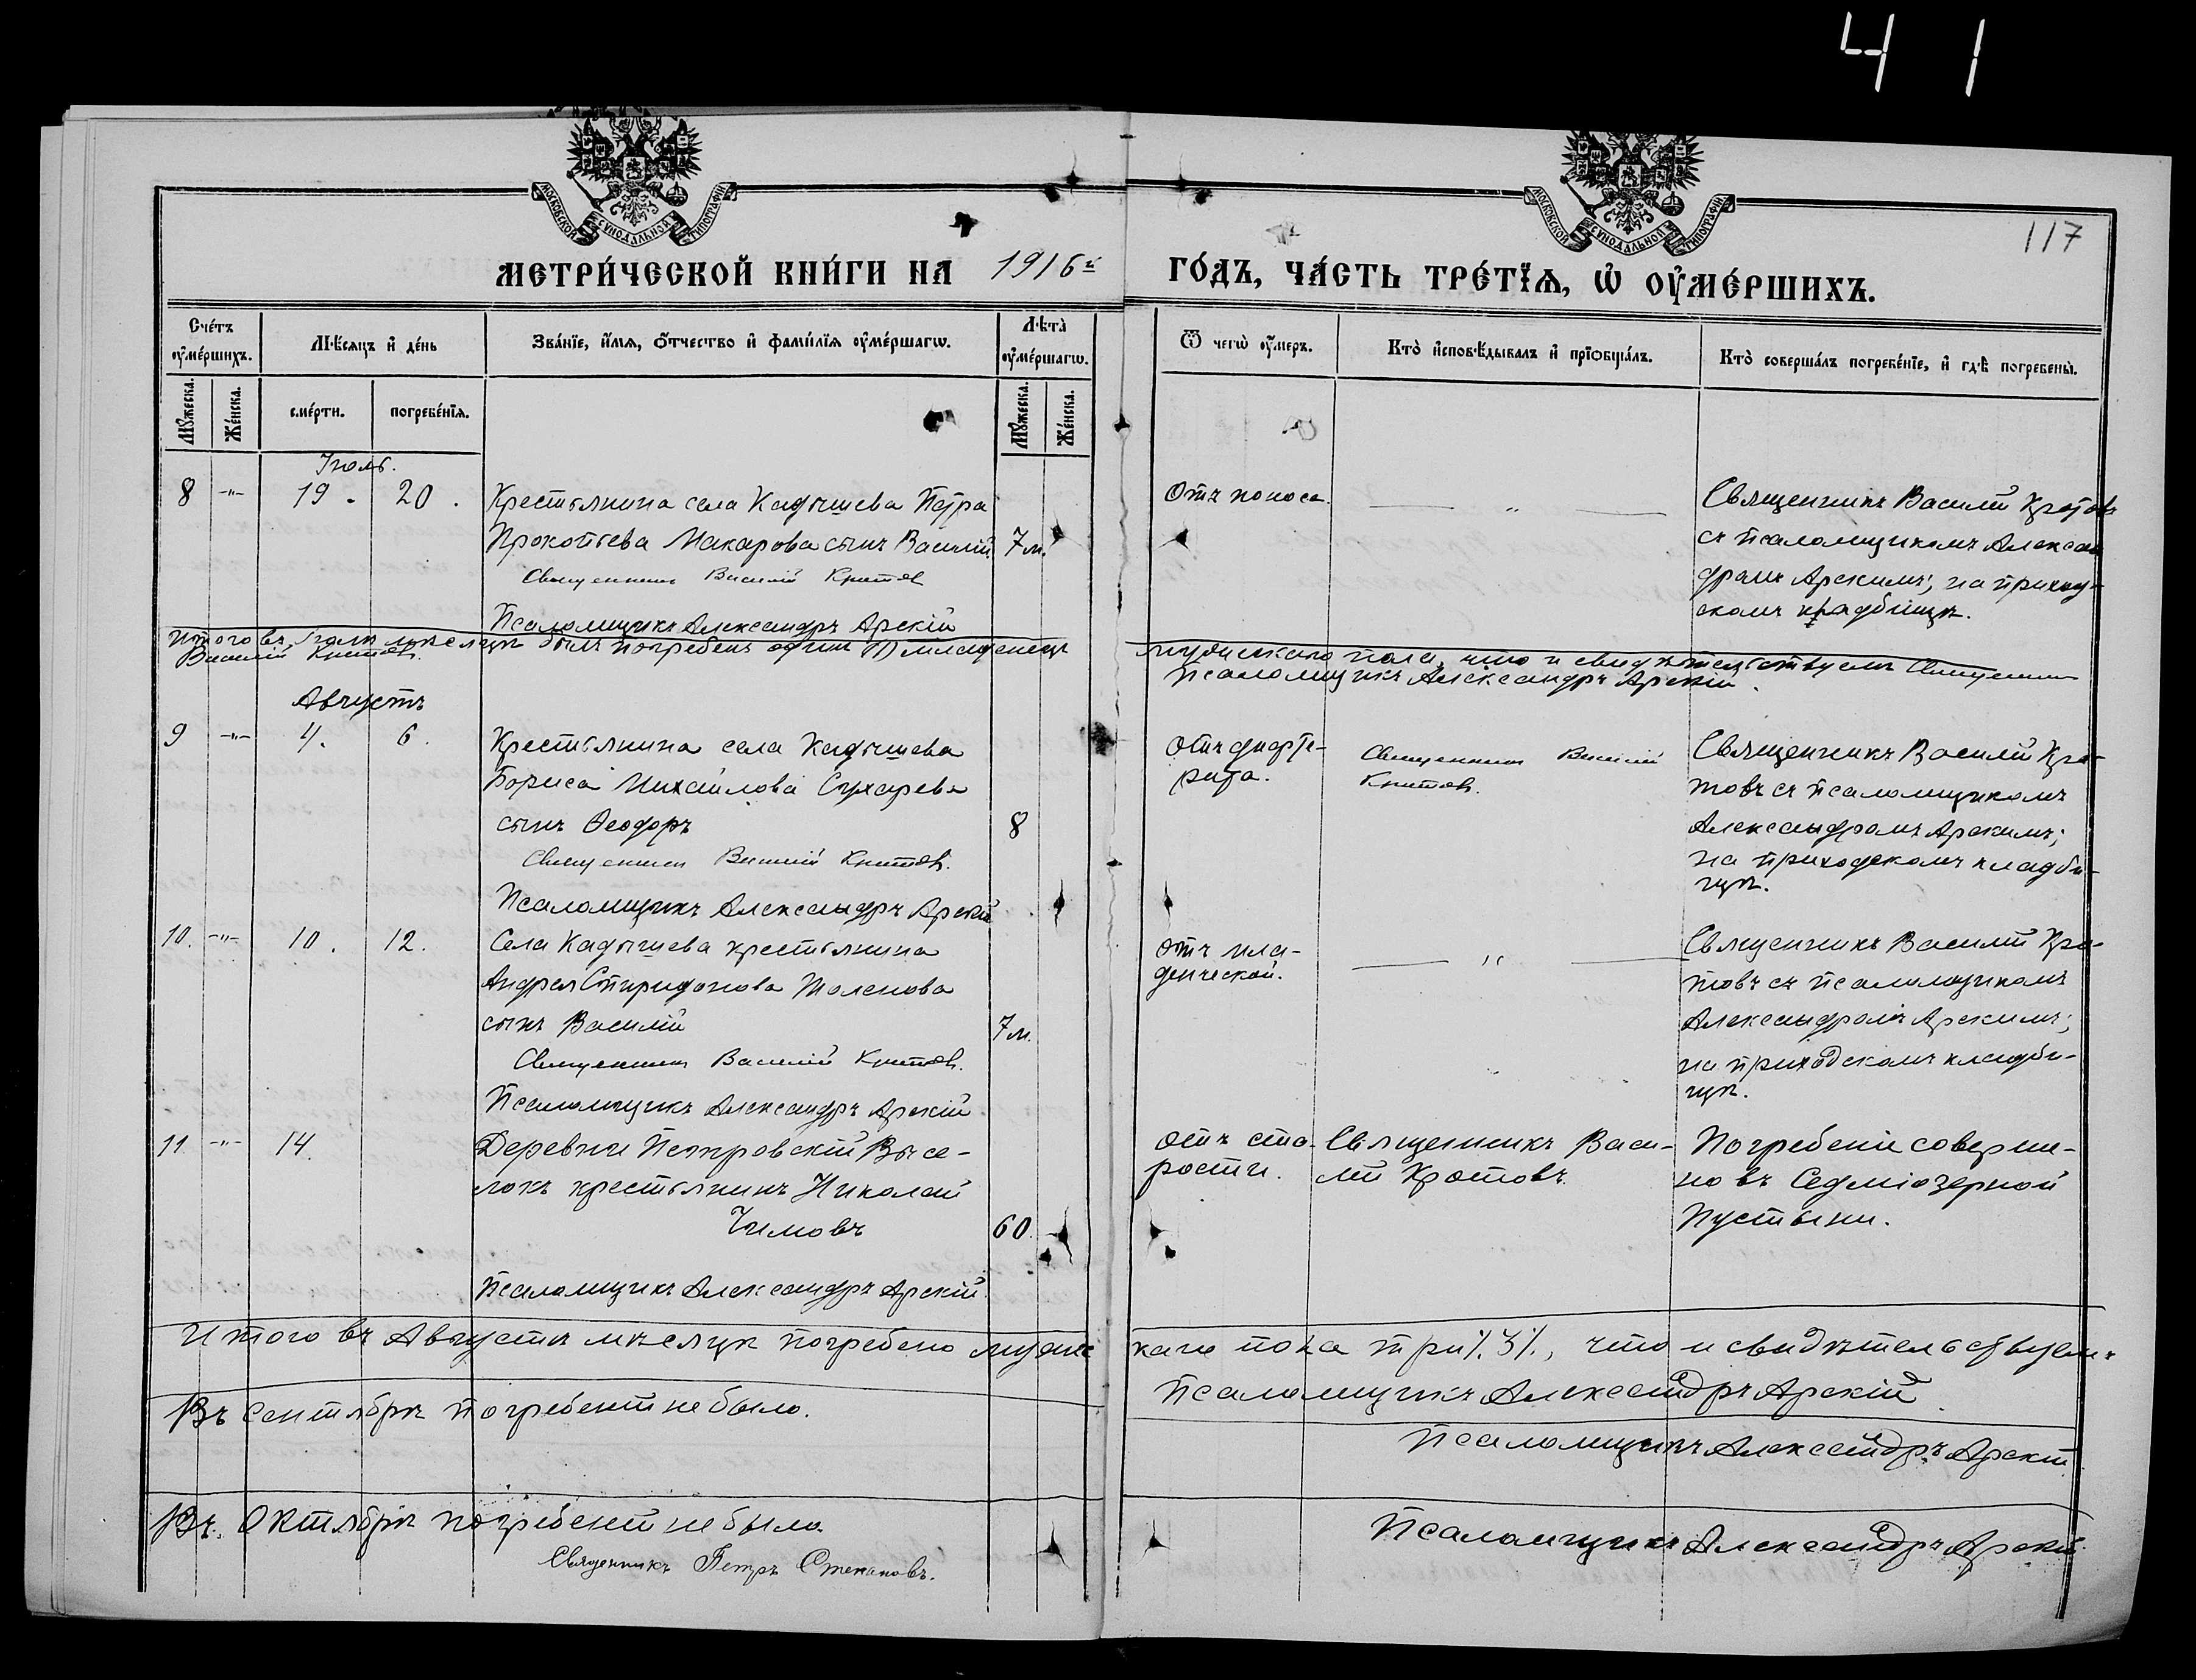 4 1
МОСКОВСКОЙ СѴНОДАЛЬНОЙ ТИПОГРАФІИ
МОСКОВСКОЙ СѴНОДАЛЬНОЙ ТИПОГРАФІИ
117
МЕТРИ́ЧЕСКОЙ КНИ́ГИ НА 1916й ГО́ДЪ, ЧА́СТЬ ТРЕ́ТЇѦ, Ѡ҆ ОУ҆МЕ́РШИХЪ.
Сче́тъ оу҆ме́ршихъ.
Мѣ́сѧцъ и҆ де́нь
Зва́нїе, и҆́мѧ, ѻ҆́тчество и҆ фами́лїѧ оу҆ме́ршагѡ.
Лѣ́та оу҆ме́ршагѡ.
Ѿ чегѡ̀ оу҆́меръ.
Кто̀ и҆сповѣ́дывалъ и҆ прїѻбща́лъ.
Кто̀ соверша́лъ погребе́нїе, и҆ гдѣ̀ погребены̀.
Мꙋ́жеска.
Же́нска.
сме́рти.
погребе́нїѧ.
Мꙋ́жеска.
Же́нска.
Іюль.
8 -"- 19. 20.
Крестьянина села Кадышева Петра
Прокопьева Макарова сынъ Василій 7 м.
Священникъ Василій Кротов
Псаломщикъ Александръ Арскій
Отъ поноса.
"
Священникъ Василій Кротовъ
съ псаломщикомъ Алексан
дромъ Арскимъ, на приход-
скомъ кладбищѣ.
Итого въ Іюлѣ мѣсяцѣ былъ погребенъ одинъ (1) младенецъ мужескаго пола, что и свидѣтельствуемъ Священникъ
Василій Кротовъ. Псаломщикъ Александръ Арскій.
Августъ
9 -"- 4. 6.
Крестьянина села Кадышева
Бориса Михайлова Сухарева
сынъ Ѳеодоръ 8
Священникъ Василій Кротовъ.
Псаломщикъ Александръ Арскій
Отъ дифте-
рита.
Священникъ Василій
Кротовъ.
Священникъ Василій Кро-
товъ съ псаломщикомъ
Александромъ Арскимъ;
на приходскомъ кладби-
щѣ.
10. -"- 10. 12.
Села Кадышева крестьянина
Андрея Спиридонова
сынъ Василій 7 м.
Священникъ Василій Кротовъ.
Псаломщикъ Александръ Арскій
Отъ мла-
денческой.
"
Священникъ Василій Кро-
товъ съ псаломщикомъ
Александромъ Арскимъ;
на приходскомъ кладби-
щѣ.
11 -"- 14.
Деревни Петровскій Высе-
локъ крестьянинъ Николай
60.
Псаломщикъ Александръ Арскій.
Отъ ста-
рости.
Священникъ Васи-
лій Кротовъ.
Погребеніе соверше-
но въ Седміозерной
Пустыни.
Итого въ Августѣ мѣсяцѣ погребено мужескаго пола три ٪3٪, что и свидѣтельствуемъ
Псаломщикъ Александръ Арскій.
Въ Сентябрѣ погребеній не было.
Псаломщикъ Александръ Арскій.
Въ Октябрѣ погребеній не было.
Священникъ Петръ Степановъ.
Псаломщикъ Александръ Арскій